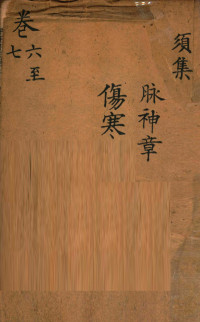 須集
脉神章
傷寒
卷六至七